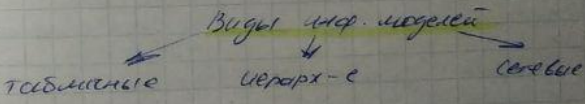 Виды инф. моделей
табличные иерарх-е сетевые